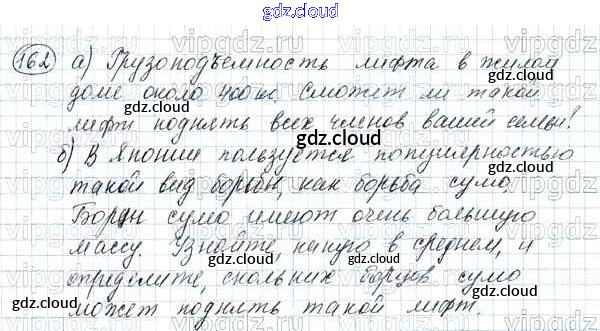 gdz.cloud
162 а) Грузоподъемность лифта в жилом
доме около 400 кг. Сможет ли такой
лифт поднять всех членов вашей семьи?
gdz.cloud
б) В Японии пользуется популярностью
такой вид борьбы, как борьба сумо.
gdz.cloud
Борцы сумо имеют очень большую
массу. Узнайте, какую в среднем, и
определите, скольких борцов сумо
gdz.cloud gdz.cloud
может поднять такой лифт.